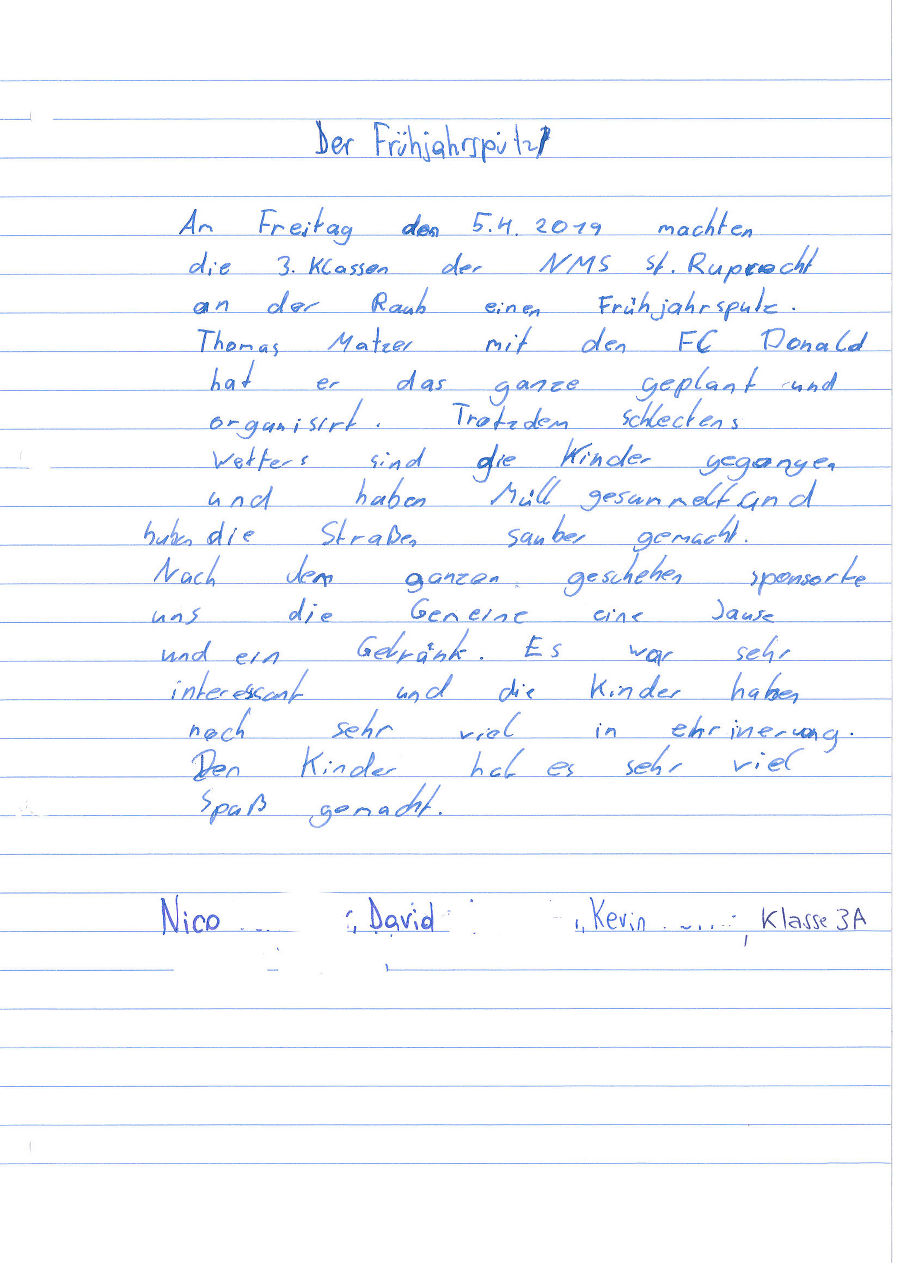 Der Frühjahrsputz
Am Freitag den 5.4.2019 machten
die 3. Klassen der NMS St. Ruprecht
an der Raab einen Frühjahrsputz.
Thomas Matzer mit den FC Donald
hat er das ganze geplant und
organisirt. Trotzdem schlectens
Wetters sind die Kinder gegangen
und haben Müll gesammelt und
haben die Straßen sauber gemacht.
Nach dem ganzen geschehen sponsorte
uns die Gemeine eine Jause
und ein Getränk. Es war sehr
interessant und die Kinder haben
noch sehr viel in ehrinerung.
Den Kinder hat es sehr viel
Spaß gemacht.
Nico , David , Kevin , Klasse 3A